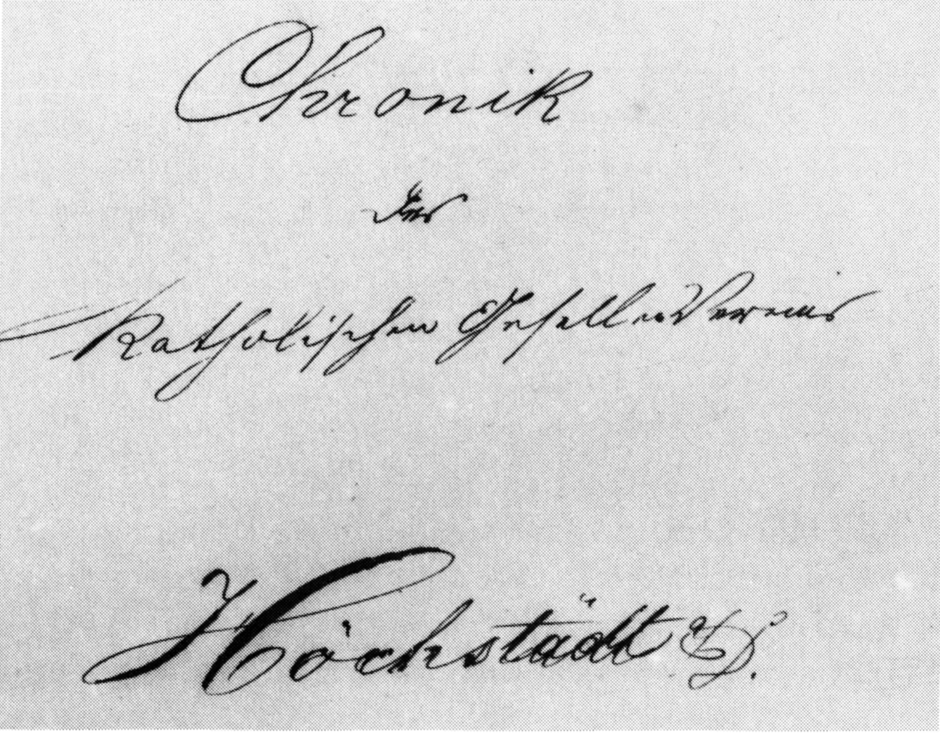 Chronik
des
Katholischen GesellenVereins
Höchstädt a/D.